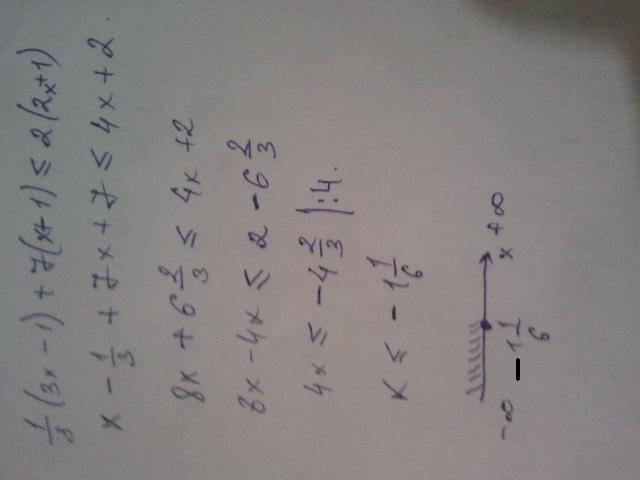 1/3 (3x - 1) + 7(x+1) ≤ 2(2x+1)
x - 1/3 + 7x + 7 ≤ 4x + 2.
8x + 6 2/3 ≤ 4x + 2
8x - 4x ≤ 2 - 6 2/3
4x ≤ -4 2/3 | :4.
x ≤ -1 1/6
-∞ -1 1/6 x +∞